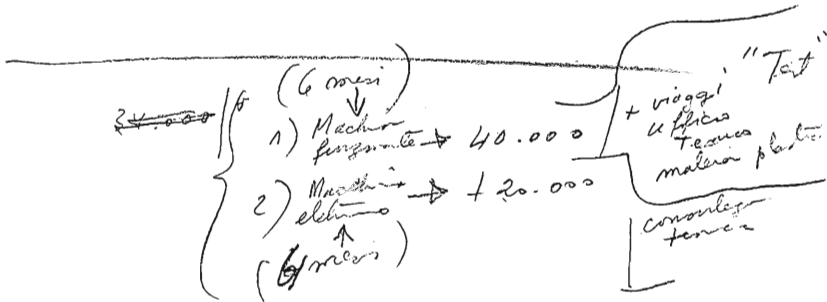 (6 mesi)
1) Macchina
funzionante → 40.000
2) Macchina → + 20.000
(6 mesi)
+ viaggi "Test"
ufficio
tecnico
materia plastic
consulenza
tecnica